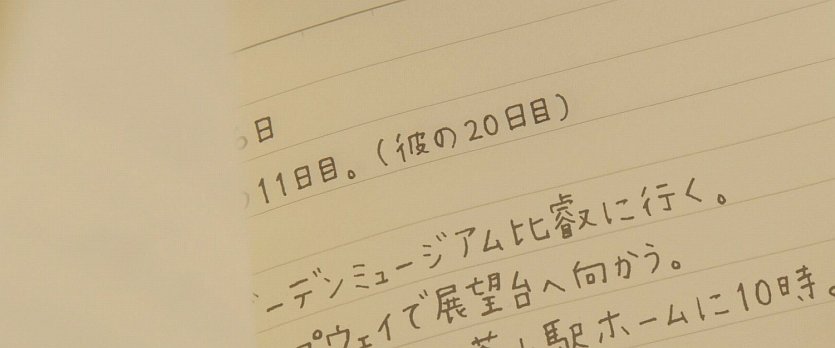 日
11日目。(彼の20日目)
ーデンミュージアム比叡に行く。
プウェイで展望台へ向かう。
駅ホームに10時。